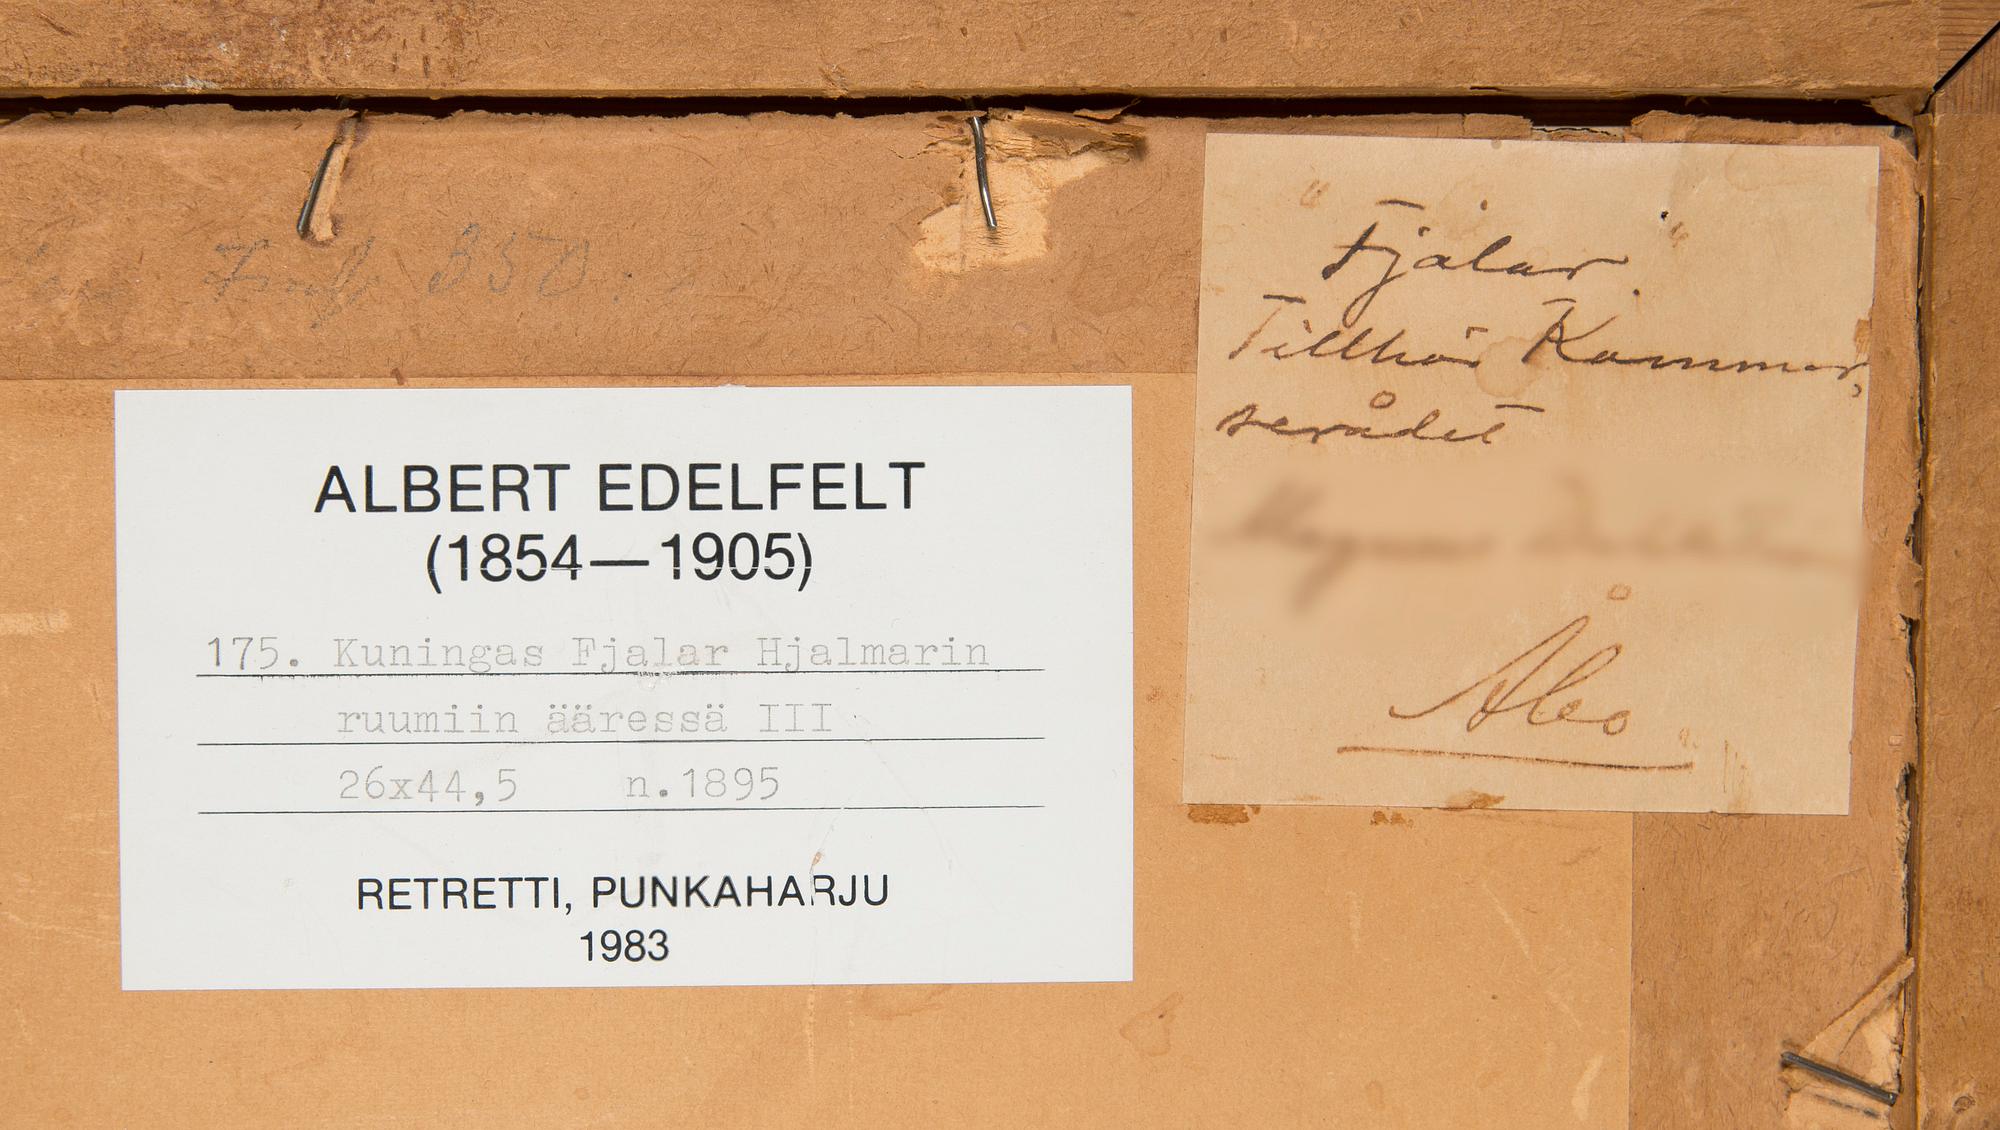 350.
ALBERT EDELFELT
(1854—1905)
175. Kuningas Fjalar Hjalmarin
ruumiin ääressä III
26x44,5 n.1895
RETRETTI, PUNKAHARJU
1983
"Fjalar"
Tillhör Kommer,
serådet
Åbo